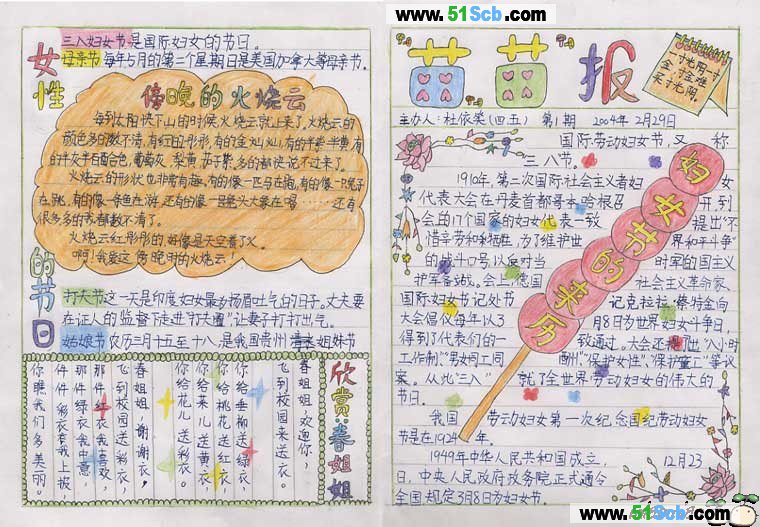 www.51Scb.com
女性的节日
三八妇女节是国际妇女的节日。
母亲节 每年5月的第二个星期日是美国加拿大等母亲节。
傍晚的火烧云
每到太阳快下山的时候火烧云就上来了。火烧云的
颜色多的数不清，有红的彤彤，有的金灿灿，有的半紫半黄，有
的半灰半百合色，葡萄灰，梨黄，茄子紫，多的都快说不过来了。
火烧云的形状也非常有趣，有的像一匹马在跑，有的像一只兔子
在跳，有的像一条鱼在游，还有的像一只是头大象在喝……还有
很多多的我都数不清了。
火烧云红彤彤的，好像是天空着了火。
啊！我爱这傍晚时的火烧云！
打夫节 这一天是印度妇女最为扬眉吐气的日子。丈夫要
在证人的监督下走进"打夫圈"，让妻子打打出气。
姑娘节 农历二月十五至十八，是我国贵州 姐妹节
欣赏：春姐姐
春姐姐，欢迎你，
飞到校园来送衣。
你给垂柳送绿衣，
你给桃花送红衣，
你给菜儿送黄衣，
你给花儿送彩衣。
春姐姐，谢谢衣，
飞到校园送彩衣。
那件红衣我喜欢，
那件绿衣我中意，
件件彩衣套我上披，
你瞧我们多美丽。
苗苗报
一寸光阴一寸
金，寸金难
买寸光阴。
主办人：杜依笑(四五) 第1期 2004年2月29日
妇女节的来历
国际劳动妇女节，又称
三八节。
1910年，第二次国际社会主义者妇女
代表大会在丹麦首都哥本哈根召开，到
会的17个国家的妇女代表一致提出"不
惜辛劳和牺牲，为了维护世界和平斗争"
的战斗口号，以反对当时军的国主义
扩军备战。会上，德国社会主义革命家
国际妇女节记处书记克拉拉·蔡特金向
大会倡仪每年以3月8日为世界妇女斗争日，
得到了代表们的一致通过。大会还提出"八小时
工作制""男女同工同酬""保护女性""保护童工"等议
案。从此"三八"就了全世界劳动妇女的伟大的
节日。
我国劳动妇女第一次纪念国纪劳动妇女
节是在1924年。
1949年中华人民共和国成立，12月23
日，中央人民政府政务院正式通令
全国规定3月8日为妇女节。
www.51Scb.com